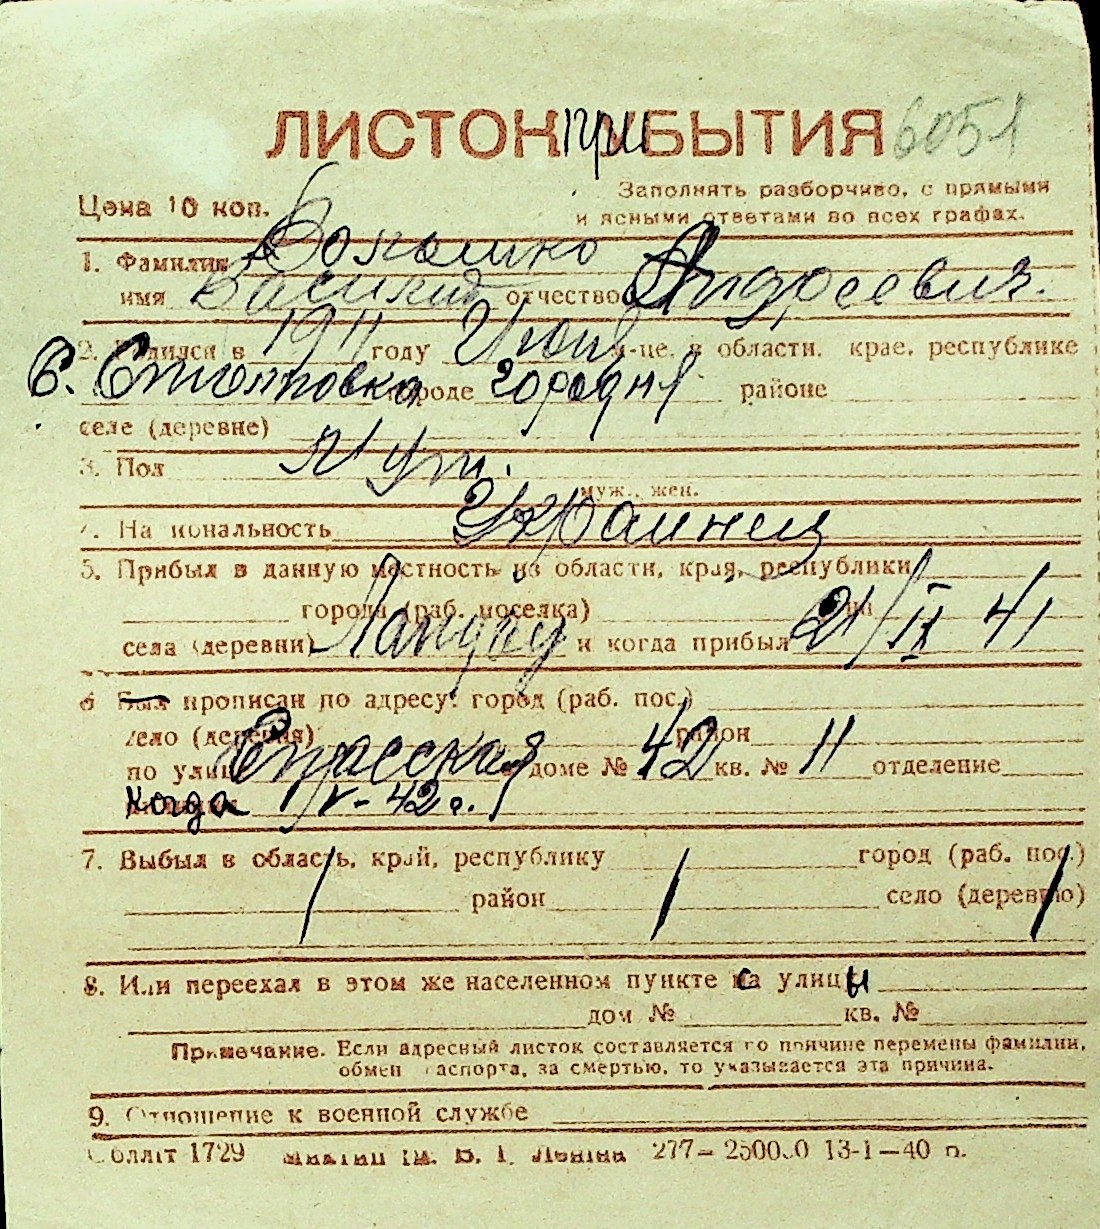 ЛИСТОК ПРИБЫТИЯ 6051
Цена 10 коп.
Заполнять разборчиво, с прямыми
и ясными ответами во всех графах.
1. Фамилия
имя Василий отчество Андреевич.
2. Родился в 1911 году м-це, в области, крае, республике
С. городе Городня районе
селе (деревне)
3. Пол муж.
муж., жен.
4. Национальность Украинец
5. Прибыл в данную местность из области, края, республики
города (раб. поселка) р-на
села (деревни) и когда прибыл 21/IX 41
6 Был прописан по адресу: город (раб. пос.)
село (деревня) район
по улице Спасская доме № 42 кв. № 11 отделение
когда
7. Выбыл в область, край, республику город (раб. пос.)
район село (деревню)
8. Или переехал в этом же населенном пункте с улицы
дом № кв. №
Примечание. Если адресный листок составляется по причине перемены фамилии,
обмен паспорта, за смертью, то указывается эта причина.
9. Отношение к военной службе
Обллiт 1729 iм. В. I. Ленiна 277—250000 13-I—40 р.